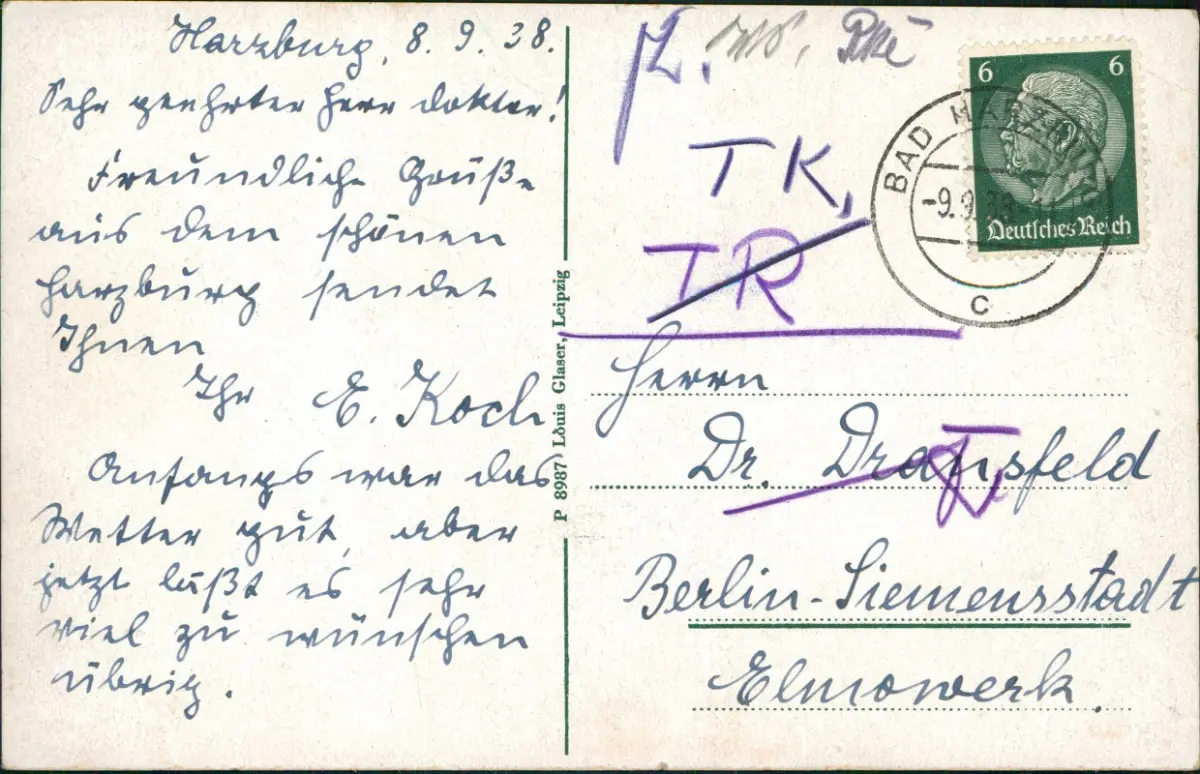 Harzburg, 8. 9. 38.
Sehr geehrter Herr Doktor!
Freundliche Grüße
aus dem schönen
Harzburg sendet
Ihnen
Ihr E. Koch
Anfangs war das
Wetter gut, aber
jetzt läßt es sehr
viel zu wünschen
übrig.
P 8987) Louis Glaser, Leipzig
TK,
TR
6 6
Deutsches Reich
BAD HARZBURG
-9.9.38
c
Herrn
Dr. Dransfeld
Berlin-Siemensstadt
Elmowerk.